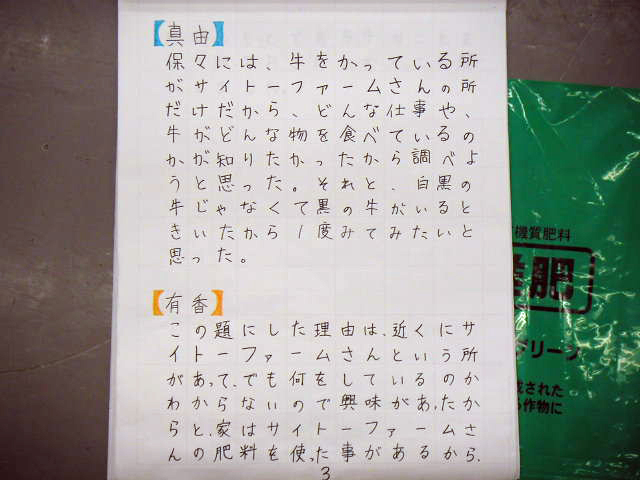 【真由】
保々には、牛をかっている所
がサイトーファームさんの所
だけだから、どんな仕事や、
牛がどんな物を食べているの
かが知りたかったから調べよ
うと思った。それと、白黒の
牛じゃなくて黒の牛がいると
きいたから1度みてみたいと
思った。
【有香】
この題にした理由は、近くにサ
イトーファームさんという所
があって、でも何をしているのか
わからないので興味があったか
らと、家はサイトーファームさ
んの肥料を使った事があるから、
3
機質肥料
肥
グリーン
された
る作物に